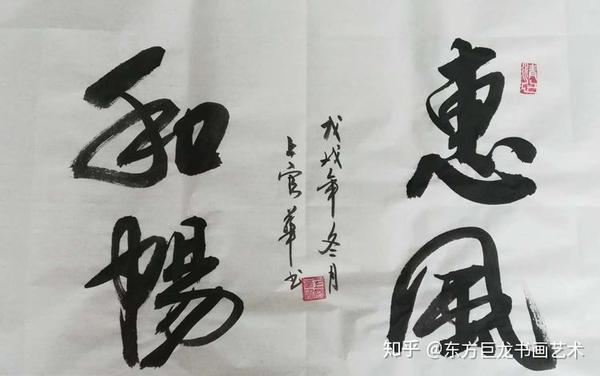 惠风
和畅
戊戌年冬月
上官华书
知乎 @东方巨龙书画艺术